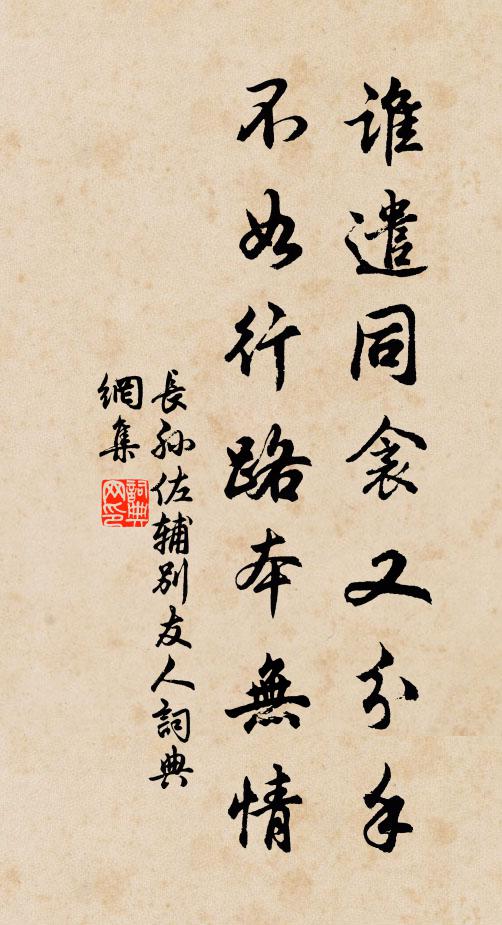 誰遣同衾又分手
不如行路本無情
長孫佐輔別友人詞典
網集
詞典
网印